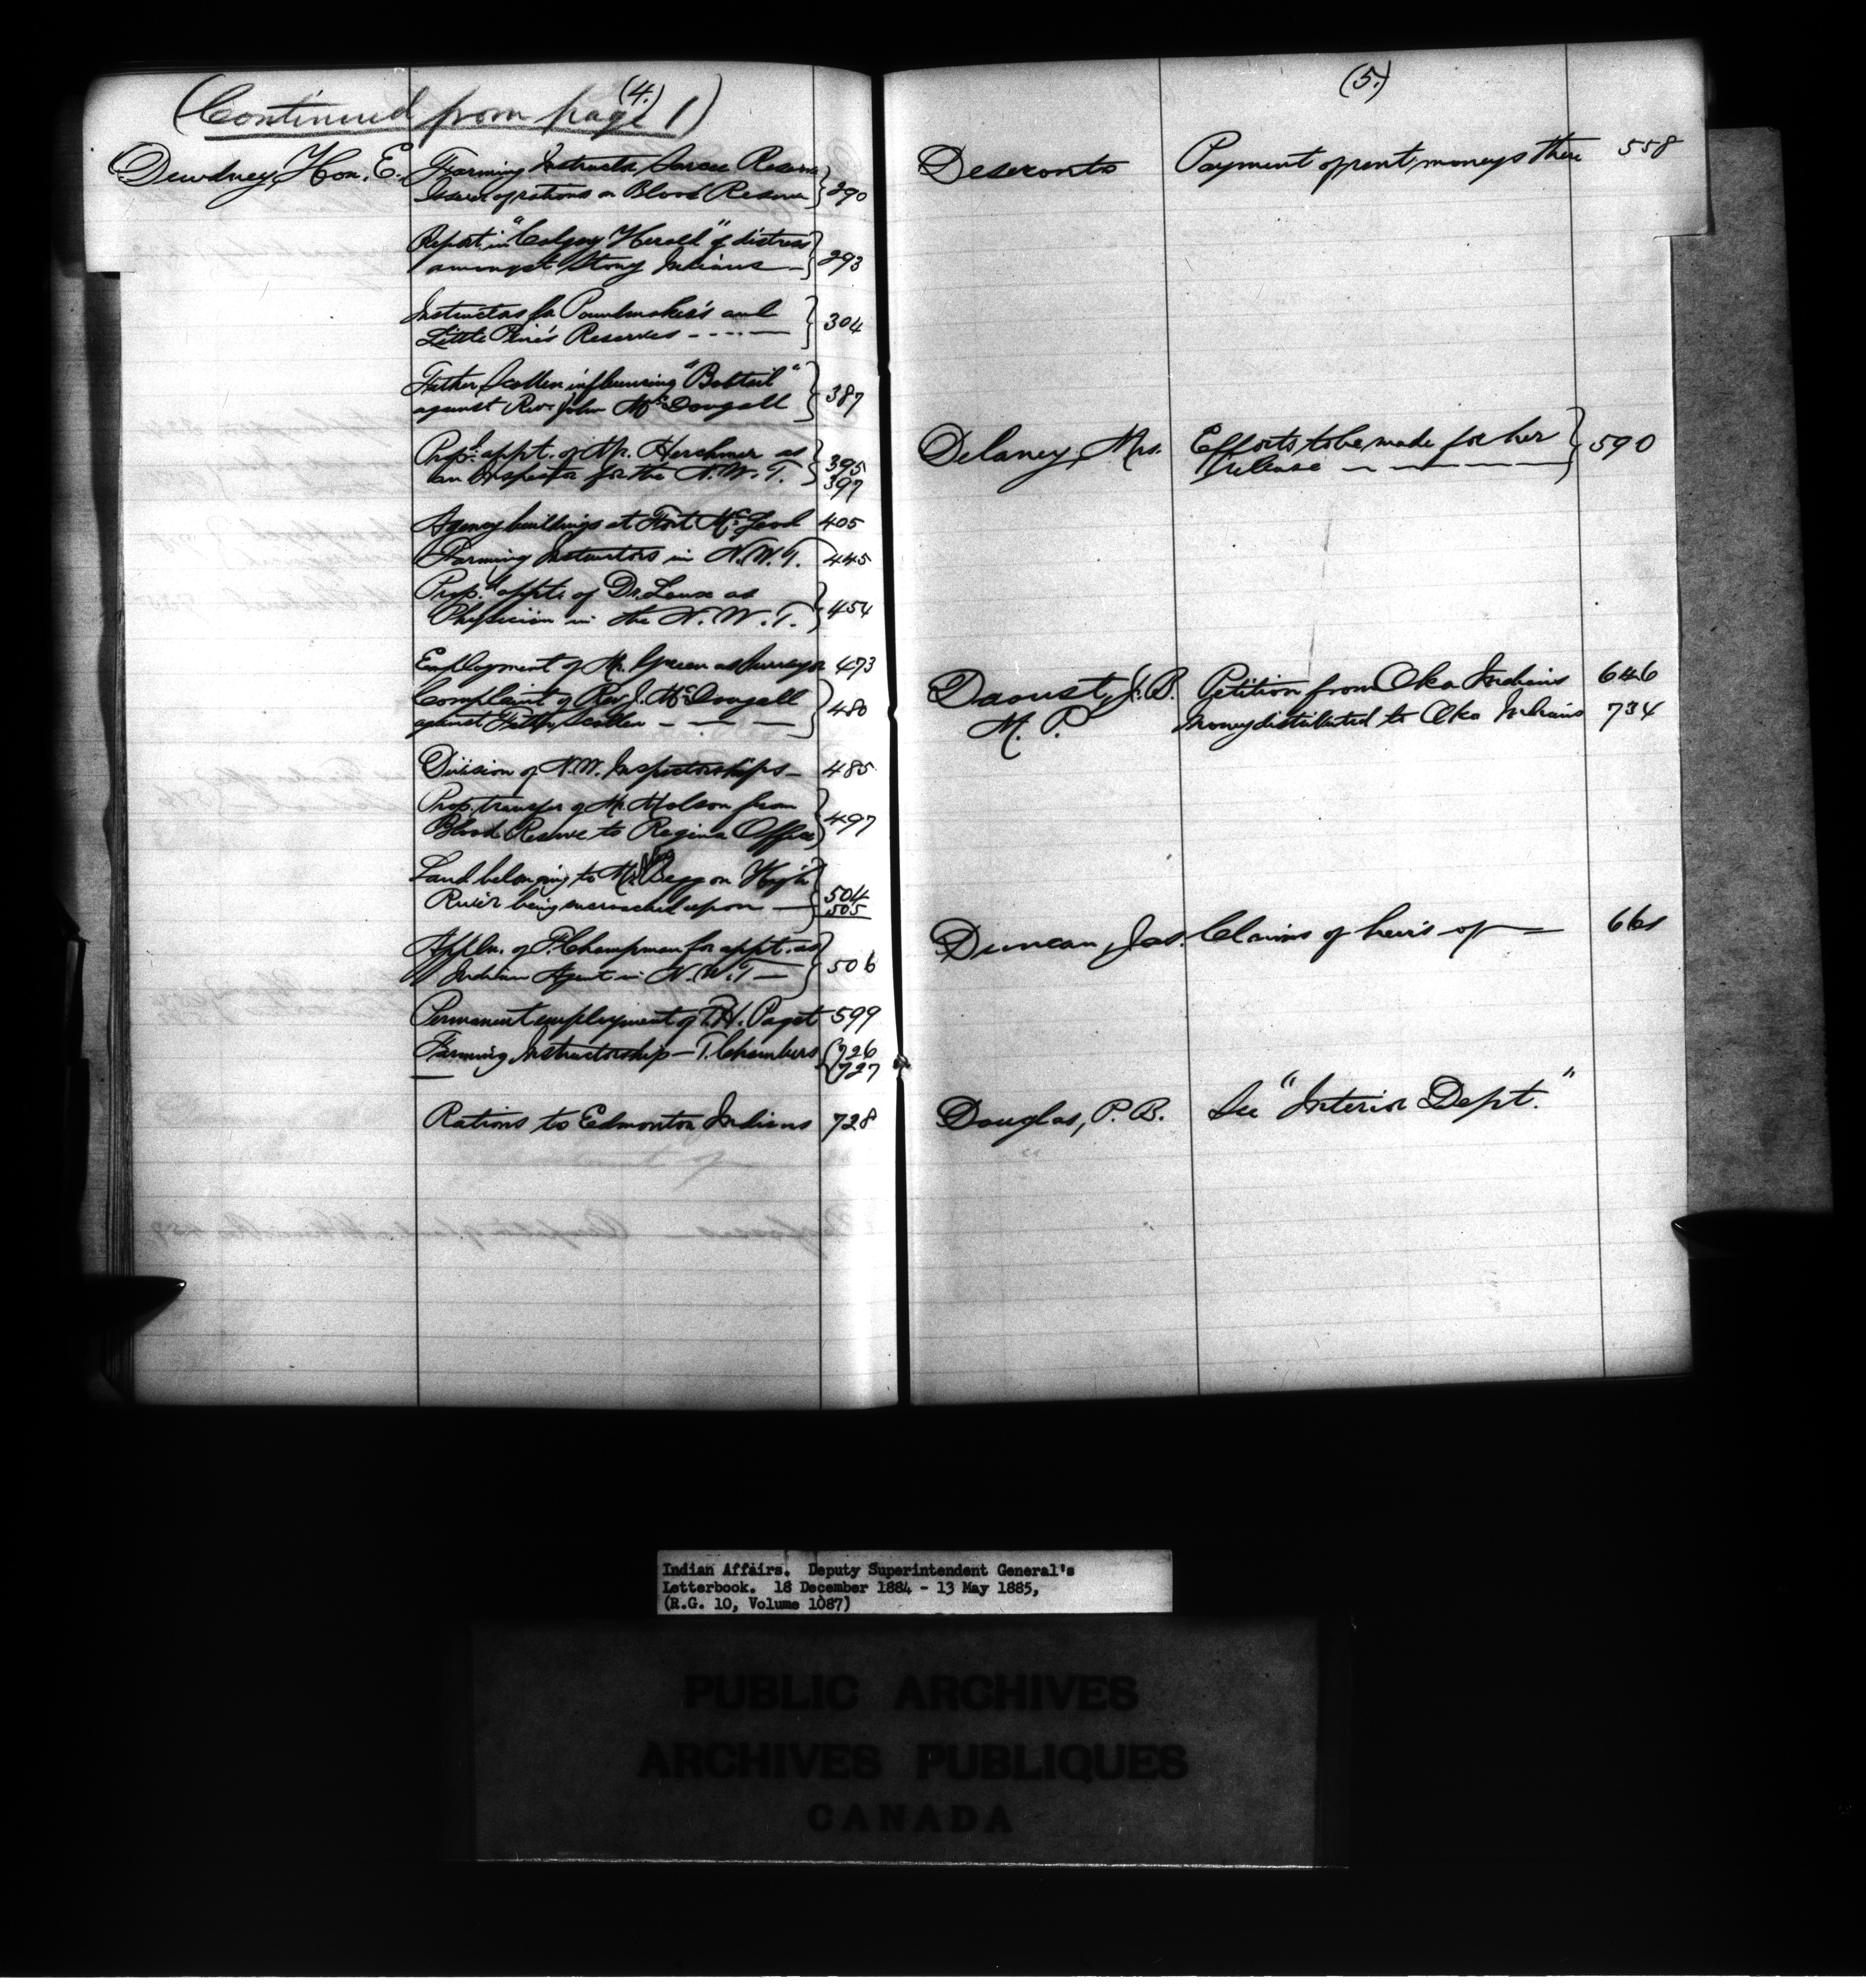 (4.)
(Continued from page 1)
Dewdney, Hon. E. Farming Instructor, Sarcee Reserve
Issue of rations on Blood Reserve } 290
Report in "Calgary Herald" of distress
amongst Stony Indians — } 293
Instructors for Poundmaker's and
Little Pine's Reserves - - - - — } 304
Father Scollen influencing "Bobtail"
against Rev. John McDougall } 387
Prop.d appt. of Mr. Herchmer as 395
an Inspector for the N.W.T. } 397
Agency buildings at Fort McLeod 405
Farming Instructors in N.W.T. 445
Prop.d appt. of Dr. as
Physician in the N.W.T. } 454
Employment of Mr. Green as Surveyor 473
Complaint of Rev. J. McDougall
against Father Scollen — — — } 480
Division of N.W. Inspectorships — 485
Prop. transfer of Mr. Molson from
Blood Reserve to Regina Office } 497
Land belonging to Mr. Begg on High
River being encroached upon — } 504
505
Appln. of F. Chapman for appt. as
Indian Agent in N.W.T — } 506
Permanent employment of T.H. Paget 599
Farming Instructorship — T. Chambers (726
(727
Rations to Edmonton Indians 728
(5.)
Deseronto Payment of rent moneys there 558
Delaney, Mrs. Efforts to be made for her
release — — — — — } 590
Daoust, J.B. Petition from Oka Indians 646
M.P. Money distributed to Oka Indians 734
Duncan, Jas. Claims of heirs of — 661
Douglas, P.B. See "Interior Dept."
Indian Affairs. Deputy Superintendent General's
Letterbook. 18 December 1884 - 13 May 1885,
(R.G. 10, Volume 1087)
PUBLIC ARCHIVES
ARCHIVES PUBLIQUES
CANADA